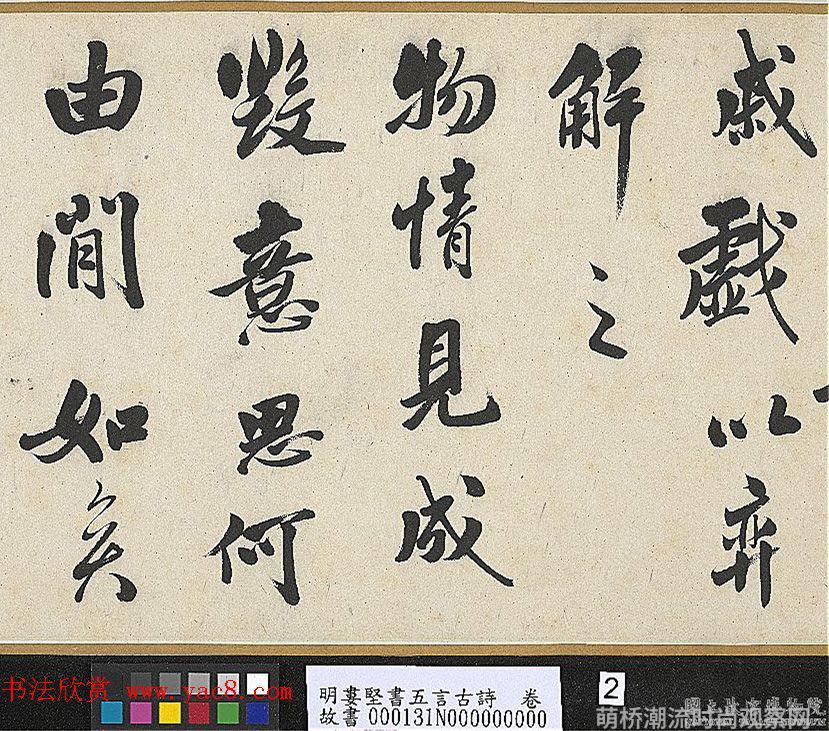 戚戲以弈
解之
物情見成
毀意思何
由閒如矣
書法欣赏 www.yac8.com
明婁堅書五言古詩 卷
故書 000131N000000000
2
萌桥潮流时尚观察网